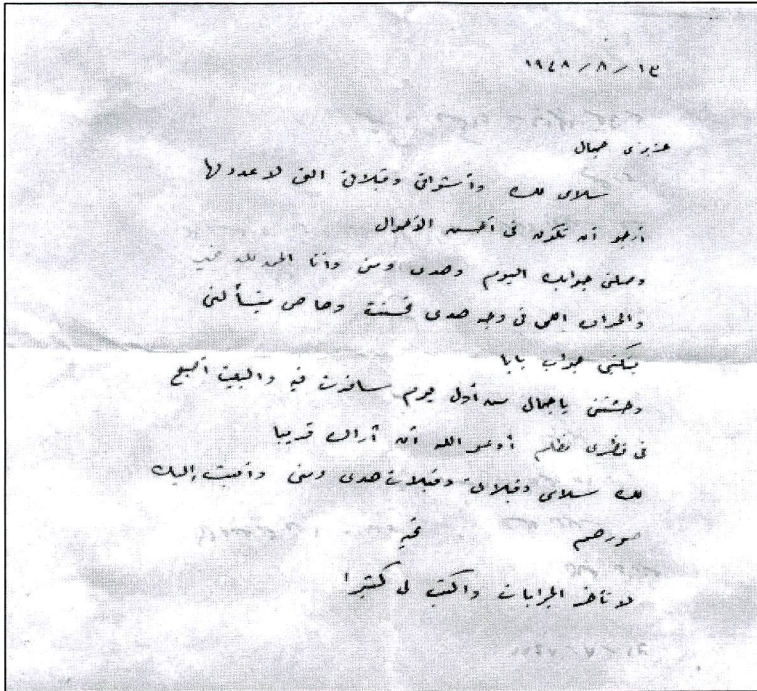 ١٣ / ٨ / ١٩٤٨
عزيزى جمال
سلامى لك وأشواقى وقبلاتى التى لا عدد لها
أرجو أن تكون فى أحسن الأحوال
وصلنى جوابك اليوم وهدى ومنى وأنا الحمد لله بخير
والحرارة اهى فى وجه هدى
بتكتبى جواب بابا
وحشتنى ياجمال من أول يوم سافرت فيه والبيت أصبح
فى نظرى مظلم أدعو الله أن أراك قريبا
لك سلامى وقبلاتى وقبلات هدى ومنى وأبعث إليك
صورهم تحية
لا تأخر الجوابات واكتب لى كثيرا